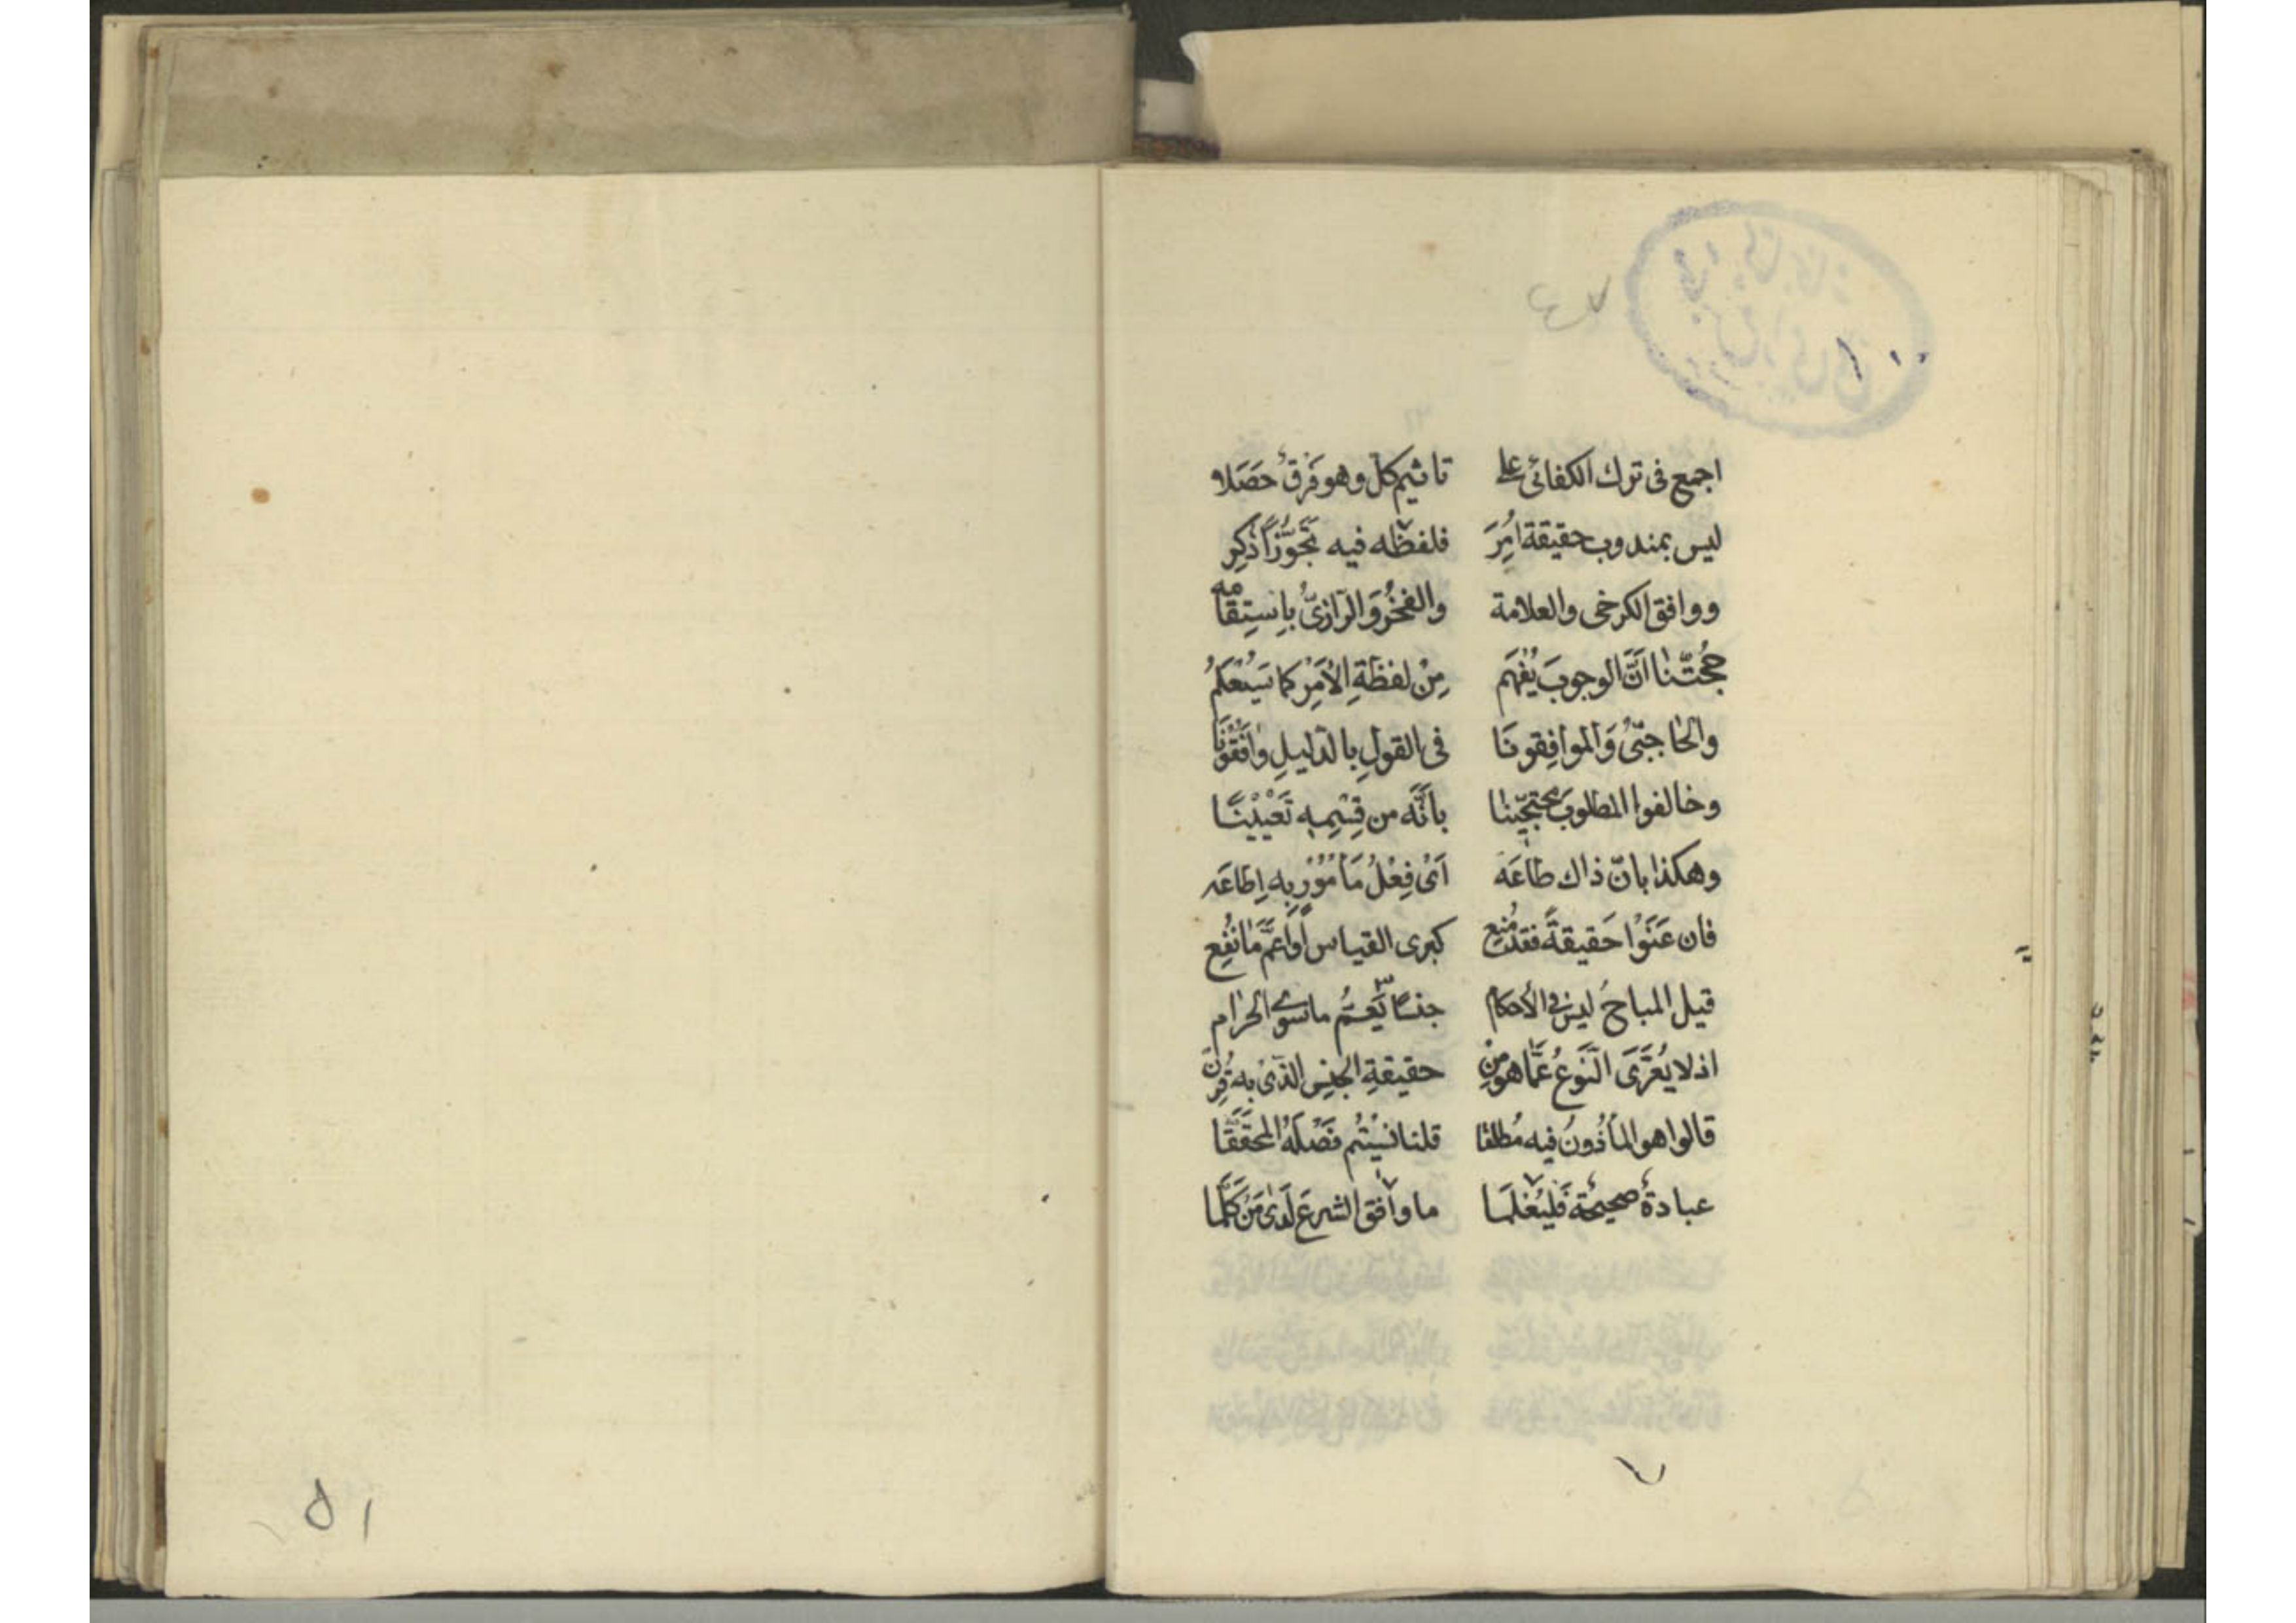 اجمع فى ترك الكفائى على تاثيم كل وهو فرق حصلا
ليس بمندوب حقيقة امر فلفظه فيه تجوزا ذكر
ووافق الكرخى والعلامة والفخر والرازى باستقامه
حجتنا ان الوجوب يفهم من لفظة الامر كما سيعلم
والحاجبى والموافقونا فى القول بالدليل وافقونا
وخالفوا المطلوب محتجينا بانه من قسمه تعيينا
وهكذا بان ذاك طاعه اى فعل مامور به اطاعه
فان عنوا حقيقة فقد منع كبرى القياس او اعم ما نفع
قيل المباح ليس فى الأحكام جنسا يعم ما سوى الحرام
اذ لا يعرى النوع عما هو من حقيقة الجنس الذى به قرن
قالوا هو المأذون فيه مطلقا قلنا نسيتم فصله المحققا
عبادة صحيحة فليعلما ما وافق الشرع لدى من كلما
٧
٥١